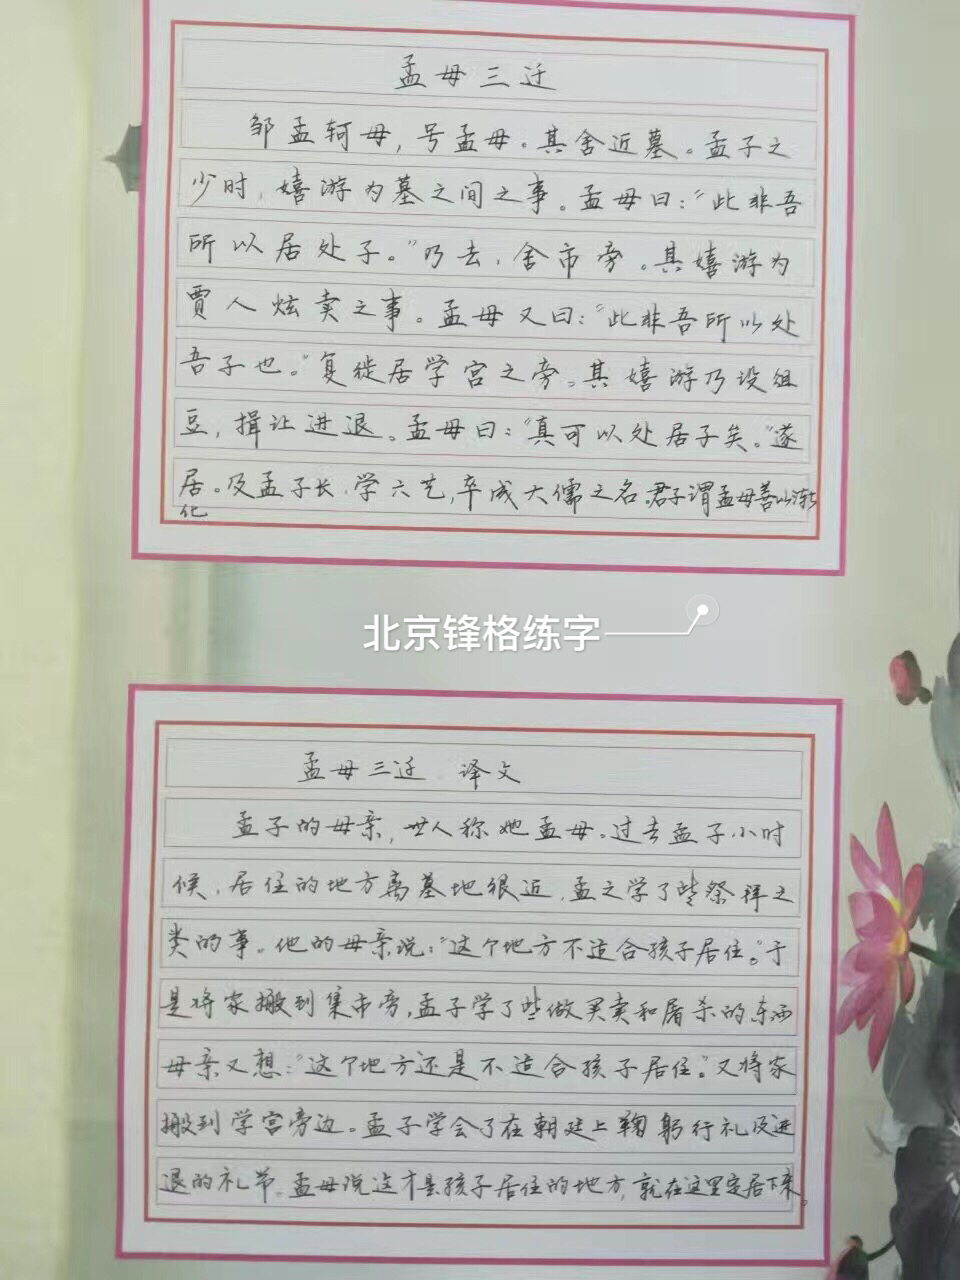 孟母三迁
邹孟轲母，号孟母。其舍近墓。孟子之
少时，嬉游为墓之间之事。孟母曰：“此非吾
所以居处子。”乃去，舍市旁。其嬉游为
贾人炫卖之事。孟母又曰：“此非吾所以处
吾子也。”复徙居学宫之旁。其嬉游乃设俎
豆，揖让进退。孟母曰：“真可以处居子矣。”遂
居。及孟子长，学六艺，卒成大儒之名。君子谓孟母善以渐
化
北京锋格练字
孟母三迁 译文
孟子的母亲，世人称她孟母。过去孟子小时
候，居住的地方离墓地很近，孟之学了些祭拜之
类的事。他的母亲说：“这个地方不适合孩子居住。”于
是将家搬到集市旁，孟子学了些做买卖和屠杀的东西
母亲又想：“这个地方还是不适合孩子居住。”又将家
搬到学宫旁边。孟子学会了在朝廷上鞠躬行礼及进
退的礼节。孟母说这才是孩子居住的地方，就在这里定居下来。